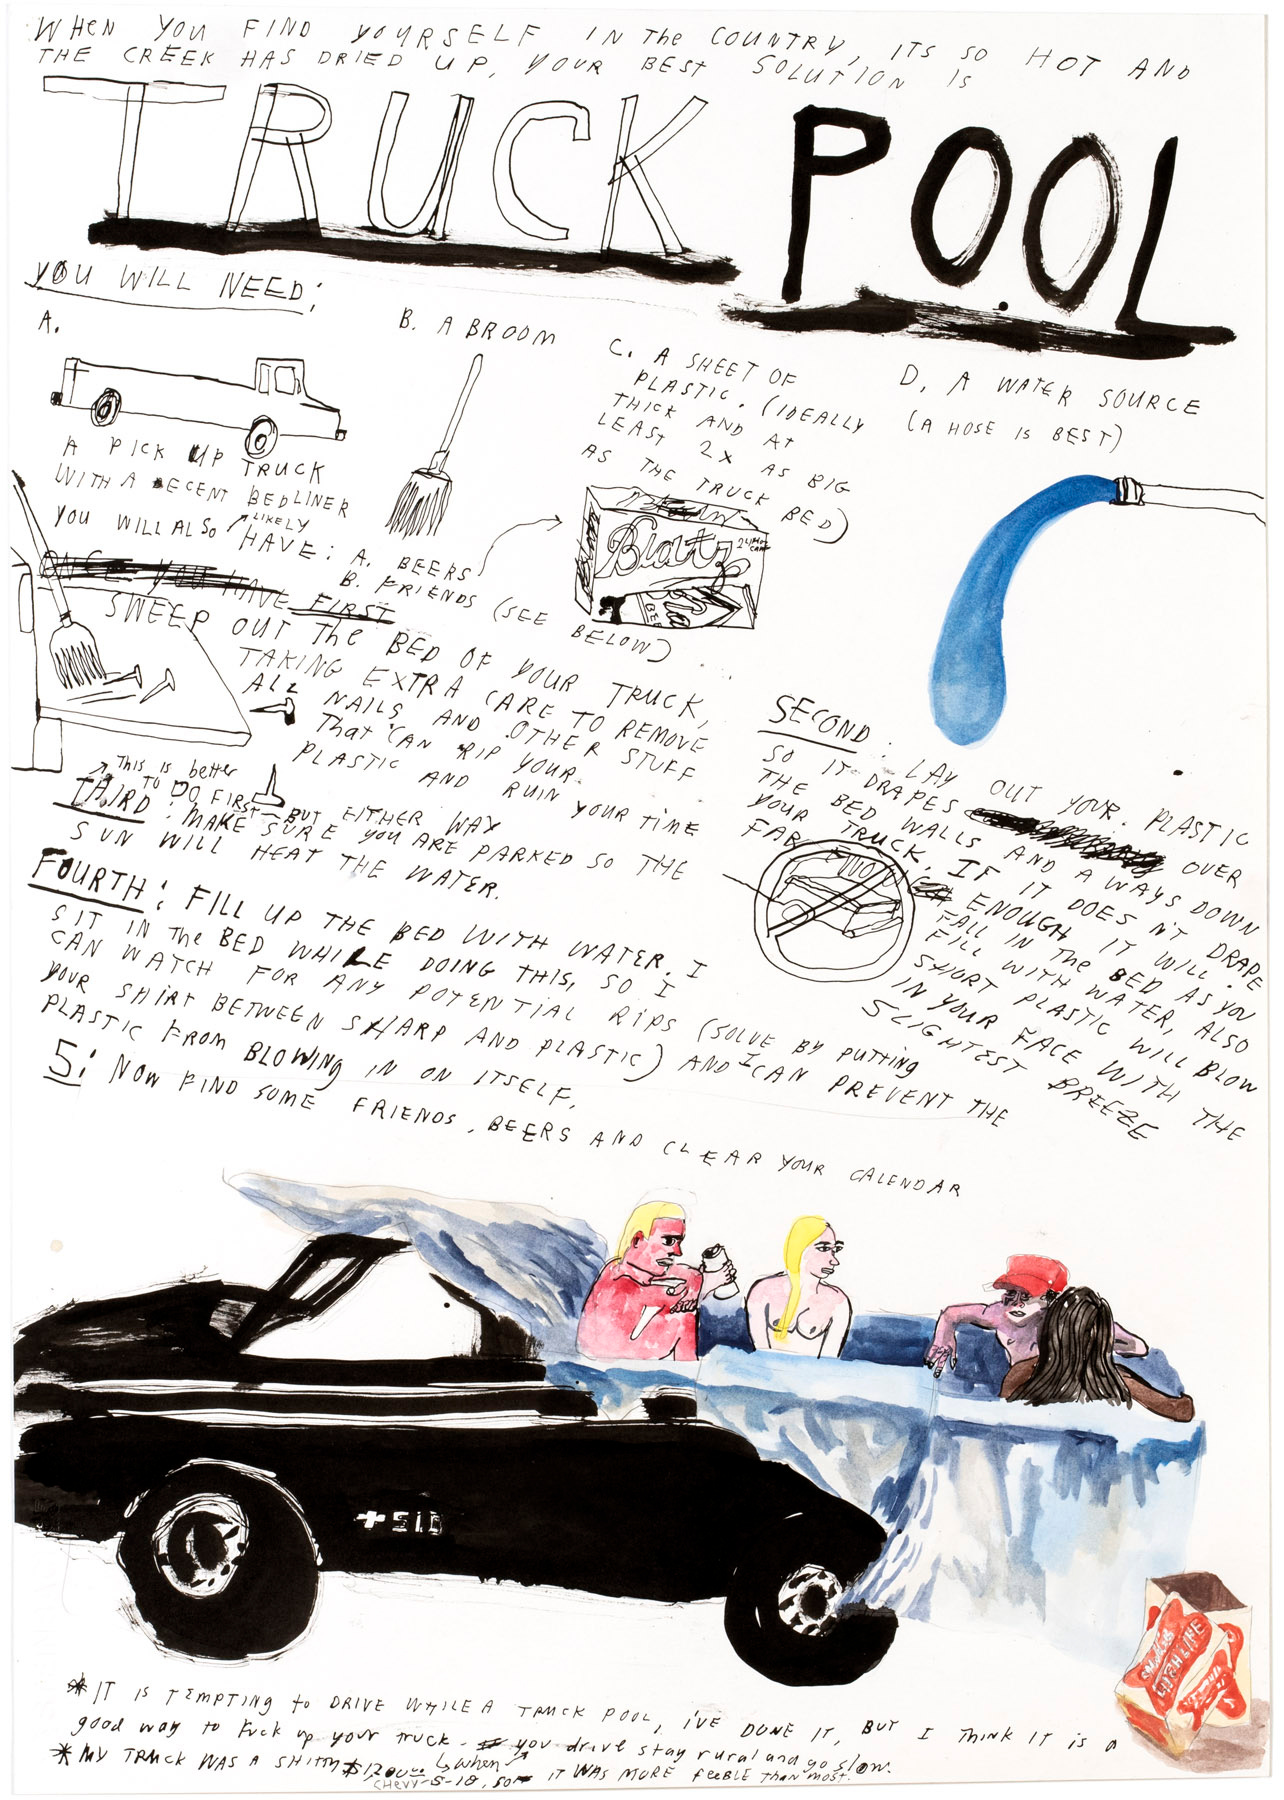 WHEN YOU FIND YOURSELF IN The COUNTRY, ITS SO HOT AND
THE CREEK HAS DRIED UP, YOUR BEST SOLUTION IS
TRUCK POOL
YOU WILL NEED:
A.
A PICK UP TRUCK
WITH A DECENT BEDLINER
B. A BROOM
C. A SHEET OF
PLASTIC. (IDEALLY
THICK AND At
LEAST 2X AS BIG
AS THE TRUCK BED)
D. A WATER SOURCE
(A HOSE IS BEST)
YOU WILL ALSO LIKELY HAVE: A. BEERS
B. FRIENDS (SEE BELOW)
Blatz
ONCE YOU HAVE FIRST
SWEEP OUT The BED OF YOUR TRUCK,
TAKING EXTRA CARE TO REMOVE
ALL NAILS AND OTHER STUFF
That CAN RIP YOUR
PLASTIC AND RUIN YOUR TIME
SECOND: LAY OUT YOUR PLASTIC
SO IT DRAPES OVER
THE BED WALLS AND A WAYS DOWN
YOUR TRUCK. IF IT DOESN'T DRAPE
FAR ENOUGH IT WILL
FALL IN THE BED AS YOU
FILL WITH WATER, ALSO
SHORT PLASTIC WILL BLOW
IN YOUR FACE WITH THE
SLIGHTEST BREEZE
This is better
TO DO FIRST BUT EITHER WAY
THIRD: MAKE SURE YOU ARE PARKED SO THE
SUN WILL HEAT THE WATER.
FOURTH: FILL UP THE BED WITH WATER. I
SIT IN The BED WHILE DOING THIS, SO I
CAN WATCH FOR ANY POTENTIAL RIPS (SOLVE BY PUTTING
YOUR SHIRT BETWEEN SHARP AND PLASTIC) AND I CAN PREVENT THE
PLASTIC FROM BLOWING IN ON ITSELF.
5: NOW FIND SOME FRIENDS, BEERS AND CLEAR YOUR CALENDAR
S10
HIGH LIFE
* IT IS TEMPTING to DRIVE WHILE A TRUCK POOL, I'VE DONE IT, BUT I THINK IT IS A
good way to Fuck up your truck. when you drive stay rural and go slow.
* MY TRUCK WAS A SHITTY $1,200.00 CHEVY-S-10, SO IT WAS MORE FEEBLE Than most.